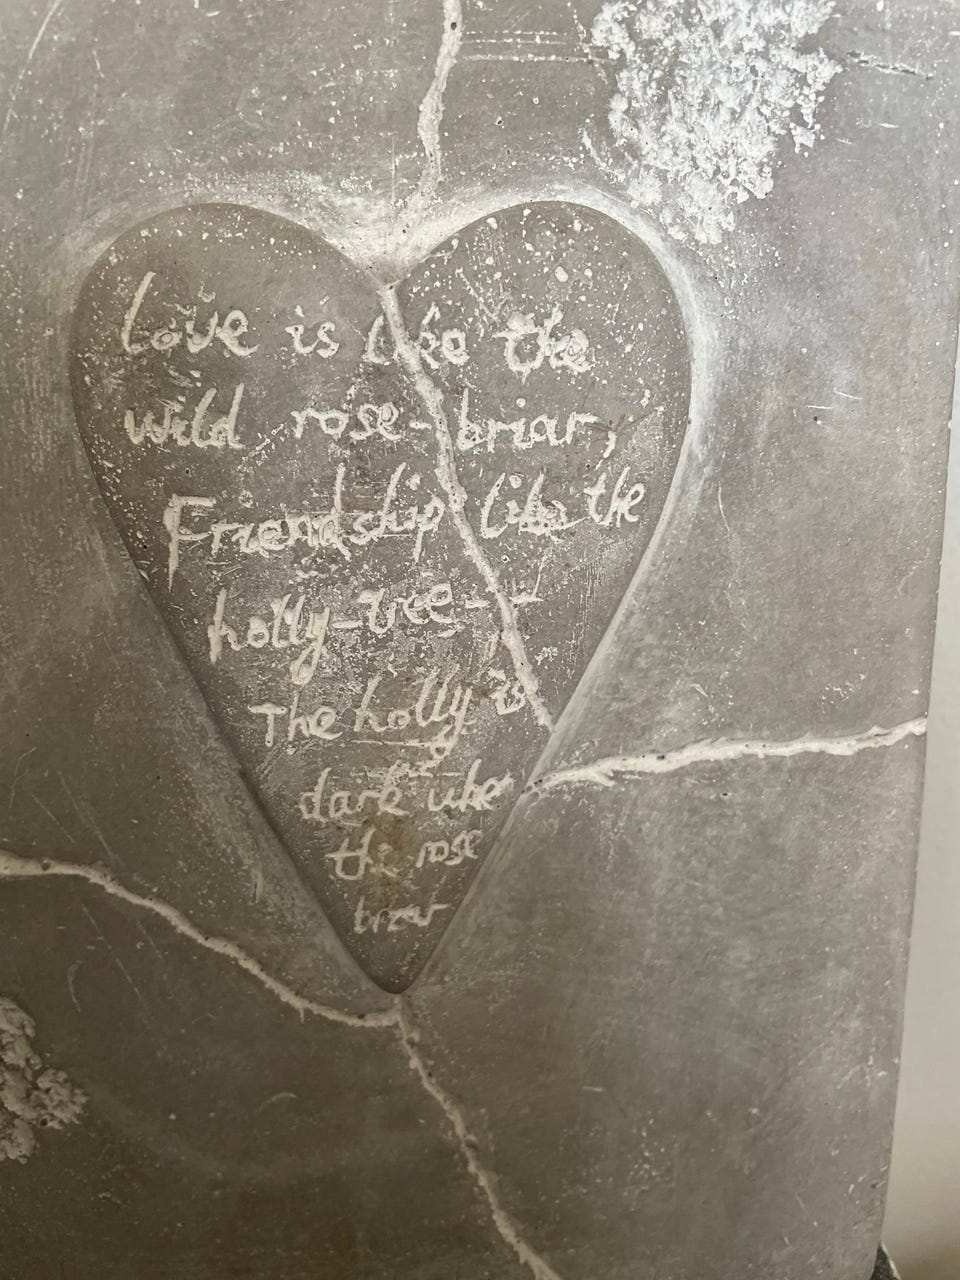 Love is like the
wild rose-briar,
Friendship like the
holly-tree-
The holly is
dark when
the rose
briar